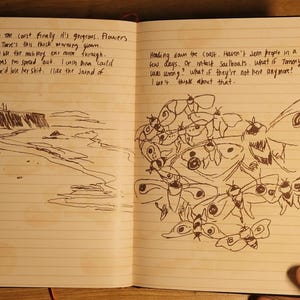 the coast finally it's gorgeous. Flowers
There's this thick morning
like the come through.
spread out I wish Dom could
her shit. I like the sound of
Heading down the coast. Haven't seen people in a
few days. Or intact sailboats. What if Tommy
was wrong? What if they're not here anymore?
I can't think about that.